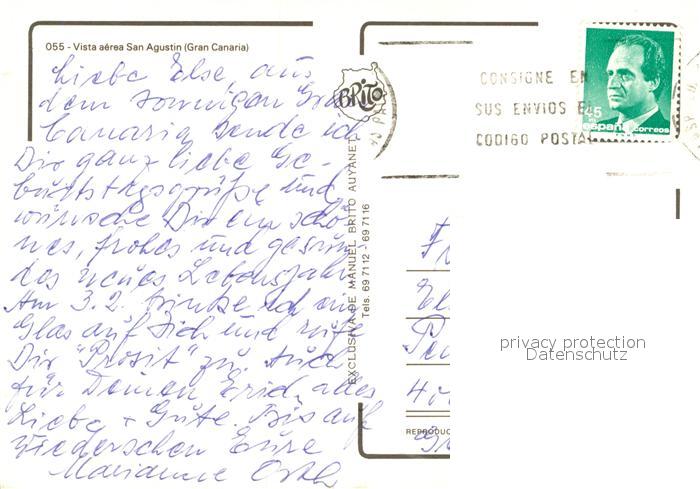 055 - Vista aérea San Agustin (Gran Canaria)
Liebe Else, aus
dem sonnigen Gran
Canaria sende ich
Dir ganz liebe Ge-
burtstagsgrüße und
wünsche Dir ein schö-
nes, frohes und gesun-
des neues Lebensjahr.
Am 3.2. trinke ich ein
Glas auf Dich und rufe
Dir "Prosit" zu. Auch
für Deinen alles
Liebe + Gute. Bis auf
Wiedersehen Eure
Marianne
BRITO
EXCLUSIVA DE MANUEL BRITO AUYANET
Tels. 69 7112 - 69 7116
CONSIGNE EN
SUS ENVIOS E
CODIGO POSTA
45
españa correos
privacy protection
Datenschutz
REPRODUC